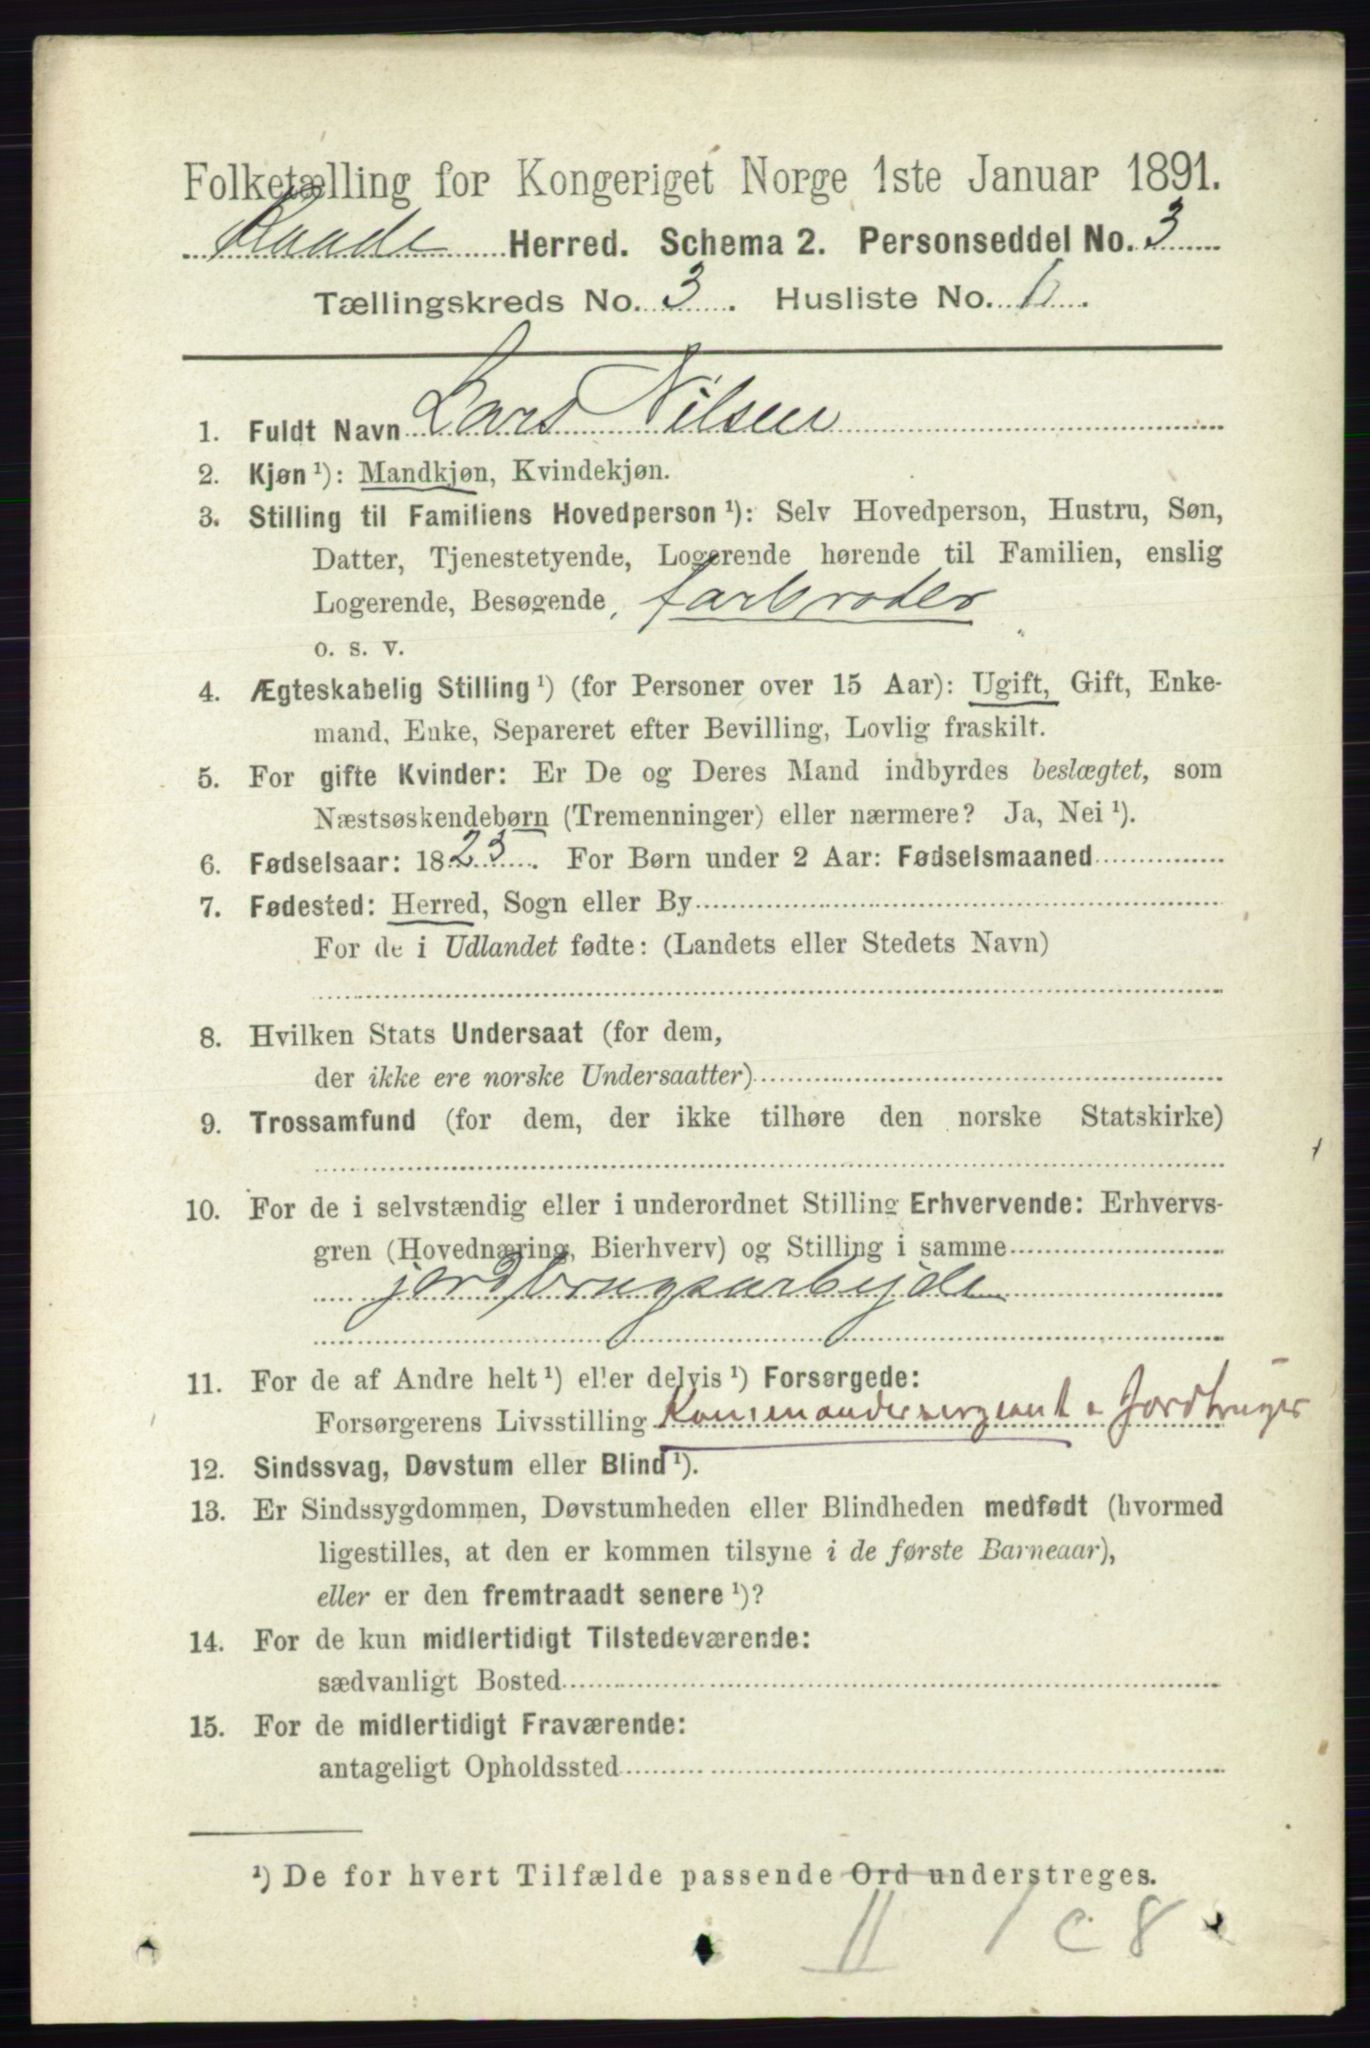 Folketælling for Kongeriget Norge 1ste Januar 1891.
Raade Herred. Schema 2. Personseddel No. 3
Tællingskreds No. 3. Husliste No.
1. Fuldt Navn Lars Nilsen
2. Kjøn ¹): Mandkjøn, Kvindekjøn.
3. Stilling til Familiens Hovedperson ¹): Selv Hovedperson, Hustru, Søn,
Datter, Tjenestetyende, Logerende hørende til Familien, enslig
Logerende, Besøgende, farbroder
o. s. v.
4. Ægteskabelig Stilling ¹) (for Personer over 15 Aar): Ugift, Gift, Enke-
mand, Enke, Separeret efter Bevilling, Lovlig fraskilt.
5. For gifte Kvinder: Er De og Deres Mand indbyrdes beslægtet, som
Næstsøskendebørn (Tremenninger) eller nærmere? Ja, Nei ¹).
6. Fødselsaar: 1823. For Børn under 2 Aar: Fødselsmaaned
7. Fødested: Herred, Sogn eller By
For de i Udlandet fødte: (Landets eller Stedets Navn)
8. Hvilken Stats Undersaat (for dem,
der ikke ere norske Undersaatter)
9. Trossamfund (for dem, der ikke tilhøre den norske Statskirke)
10. For de i selvstændig eller i underordnet Stilling Erhvervende: Erhvervs-
gren (Hovednæring, Bierhverv) og Stilling i samme
jordbrugsarbejde
11. For de af Andre helt ¹) eller delvis ¹) Forsørgede:
Forsørgerens Livsstilling Kommandersergeant Jordbruger
12. Sindssvag, Døvstum eller Blind ¹).
13. Er Sindssygdommen, Døvstumheden eller Blindheden medfødt (hvormed
ligestilles, at den er kommen tilsyne i de første Barneaar),
eller er den fremtraadt senere ¹)?
14. For de kun midlertidigt Tilstedeværende:
sædvanligt Bosted
15. For de midlertidigt Fraværende:
antageligt Opholdssted
¹) De for hvert Tilfælde passende Ord understreges.
II 1 c 8